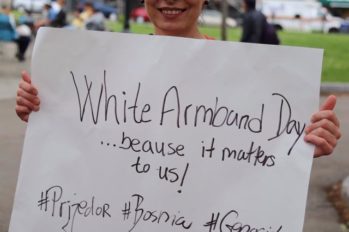 White Armband Day
...beause it matters
to us!
#Prijedor #Bosnia